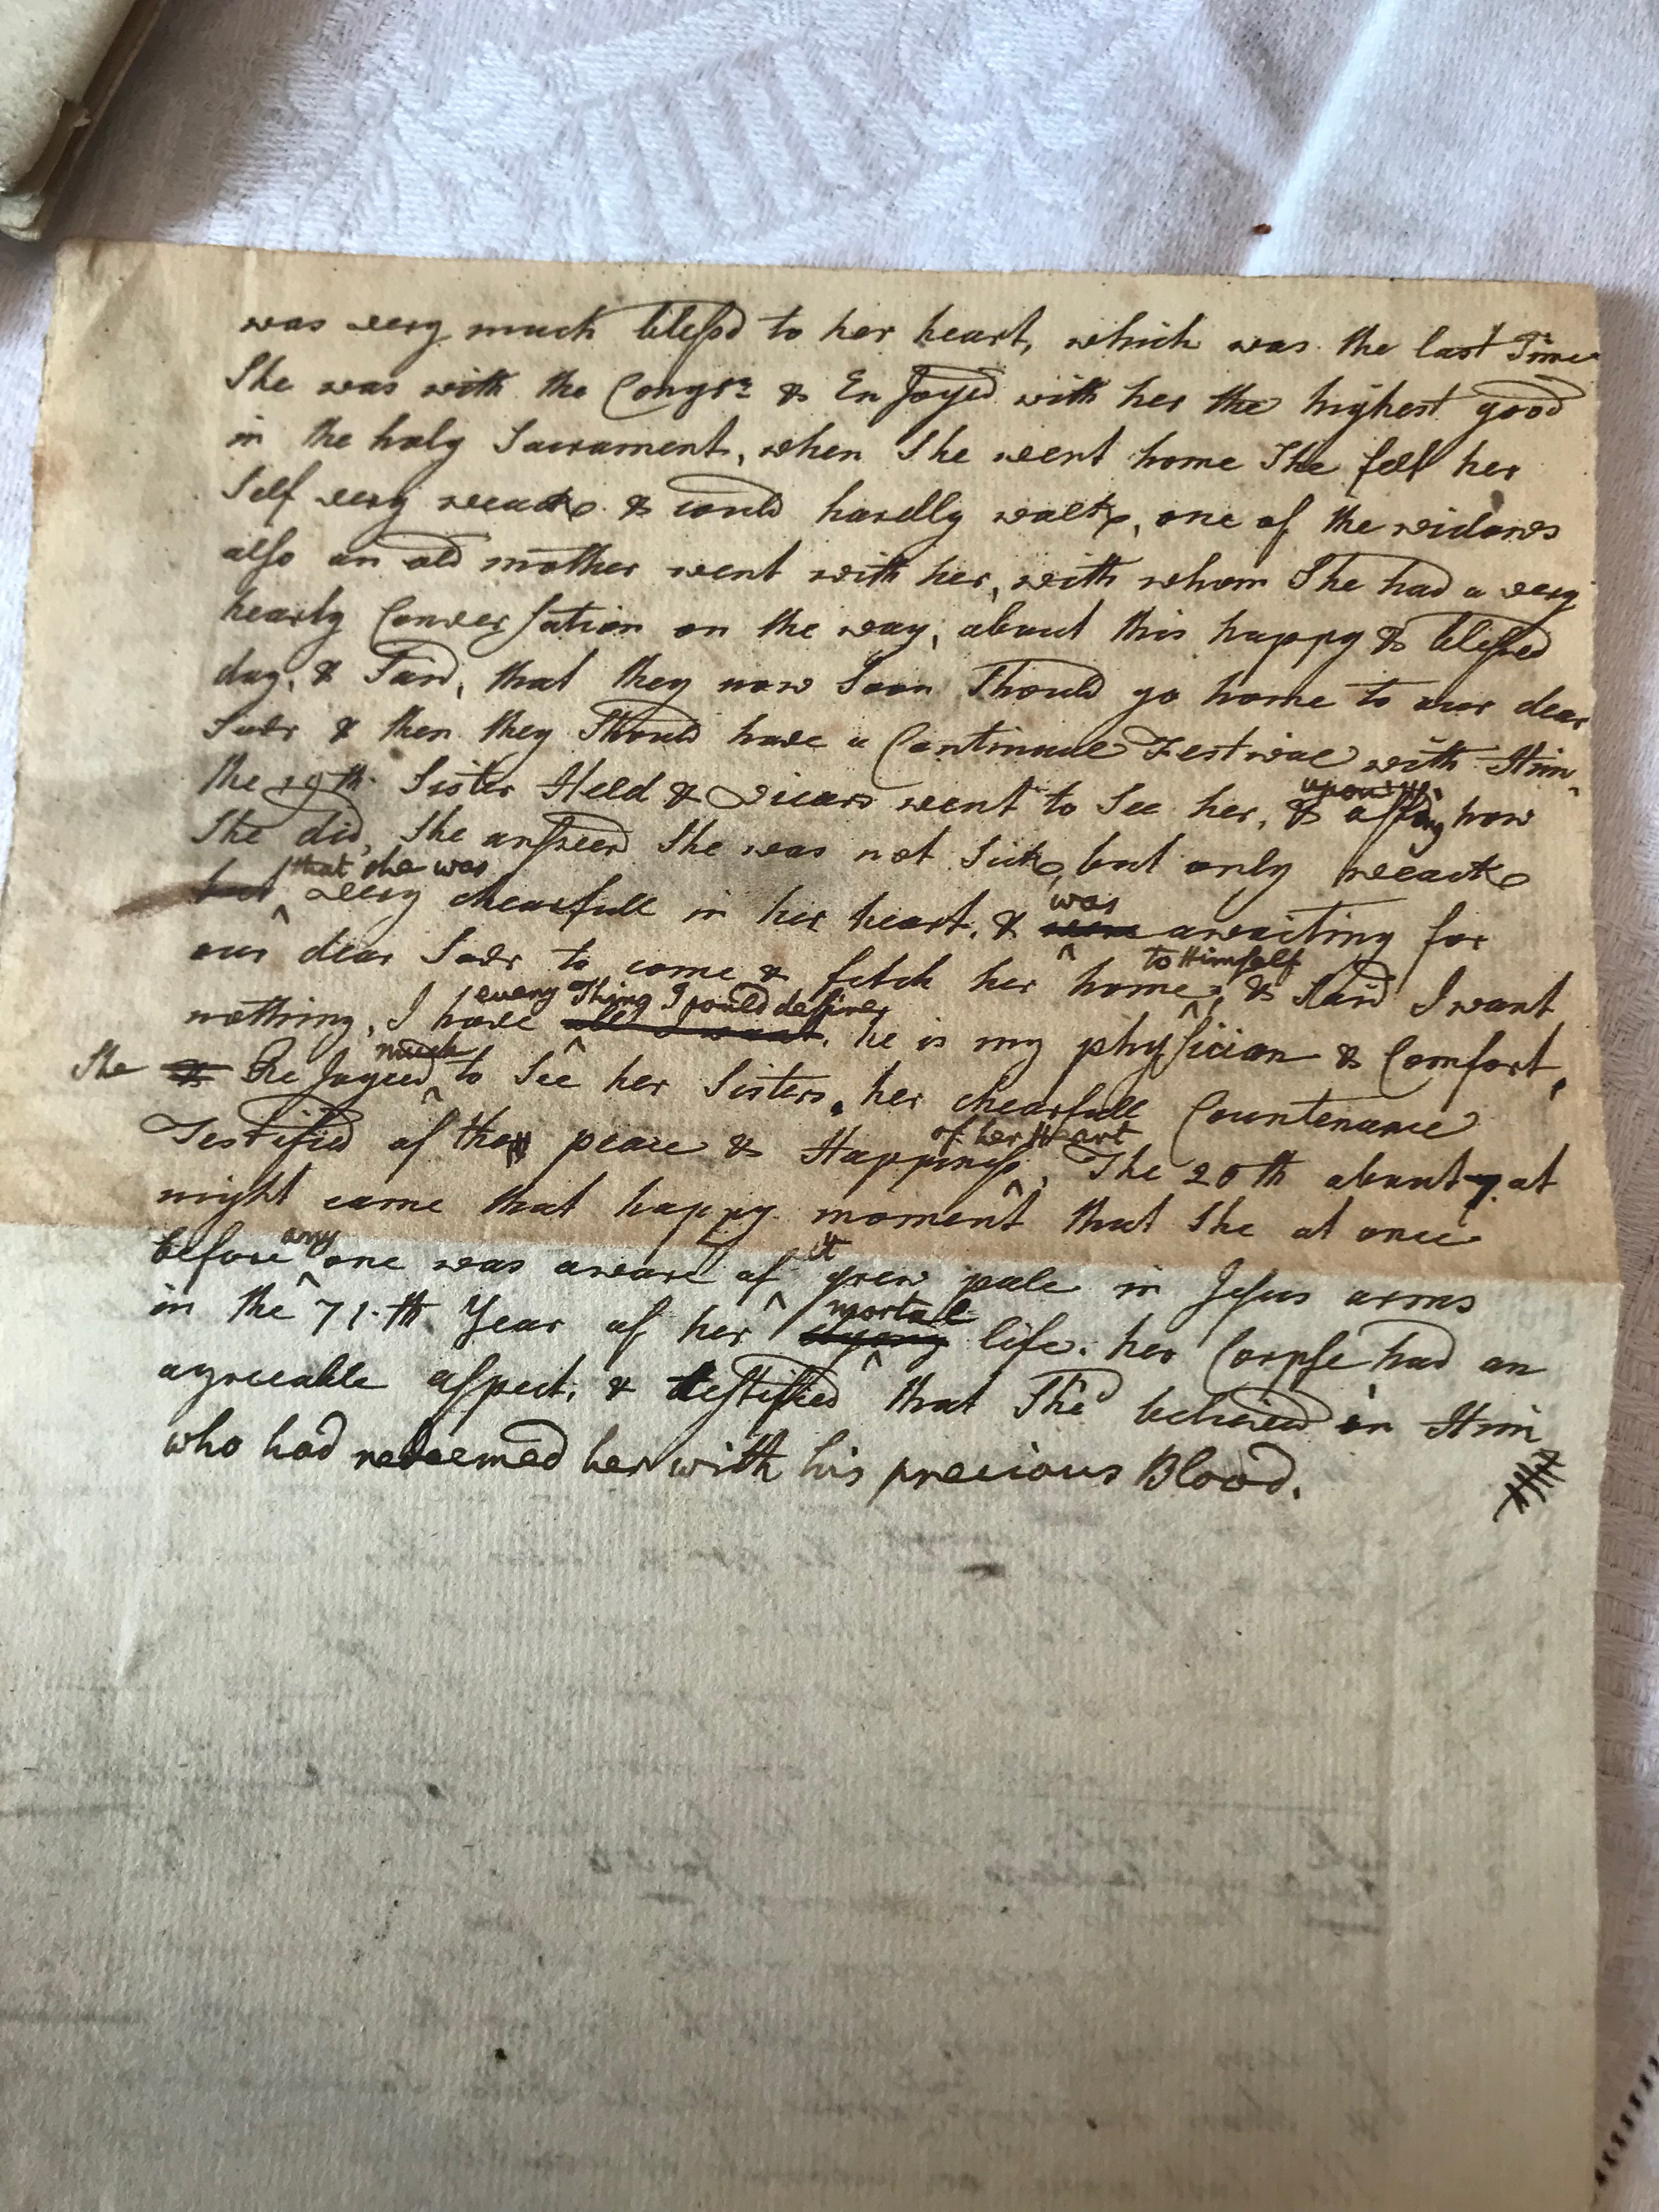 was very much blessd to her heart, which was the last Time
She was with the Congrn & En Joyed with her the highest good
in the holy Sacrament, when She went home She felt her
Self very weack & could hardly walk, one of the widows
also an old mother went with her, with whom She had a very
hearly Conversation on the way, about this happy & blessed
day, & Said, that they now Soon Should go home to our dear
Savr & then they Should have a Continuale Festivae with Him,
the 19th Sister Held & Vicars went to See her, & upon asking how
She did, She answerd She was not Sick, but only weack
but that she was very chearfull in her heart, & were was awaiting for
our dear Savr to come & fetch her home to Himself, & Said I want
nothing, I have all I want every Thing I could desire, he is my physician & Comfort,
She & Re Joyced much to See her Sisters, her chearfull Countenance
Testified of the peace & Happiness of her Heart, The 20th about 7 at
night came that happy moment that She at once
before any one was aware of it grew pale in Jesus arms
in the 71.th Year of her dyeing mortal life. her Corpse had an
agreeable aspect, & testified that She believed in Him
who had redeemed her with his precious Blood.